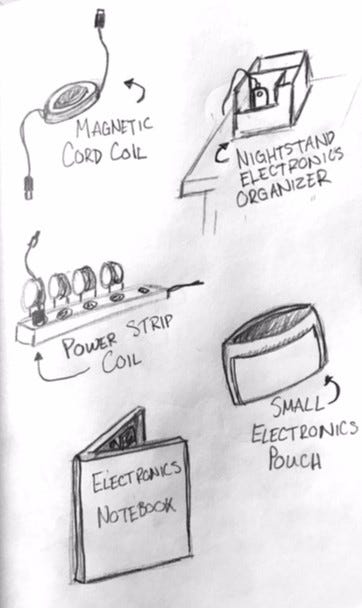 MAGNETIC
CORD COIL
NIGHTSTAND
ELECTRONICS
ORGANIZER
POWER STRIP
COIL
SMALL
ELECTRONICS
POUCH
ELECTRONICS
NOTEBOOK